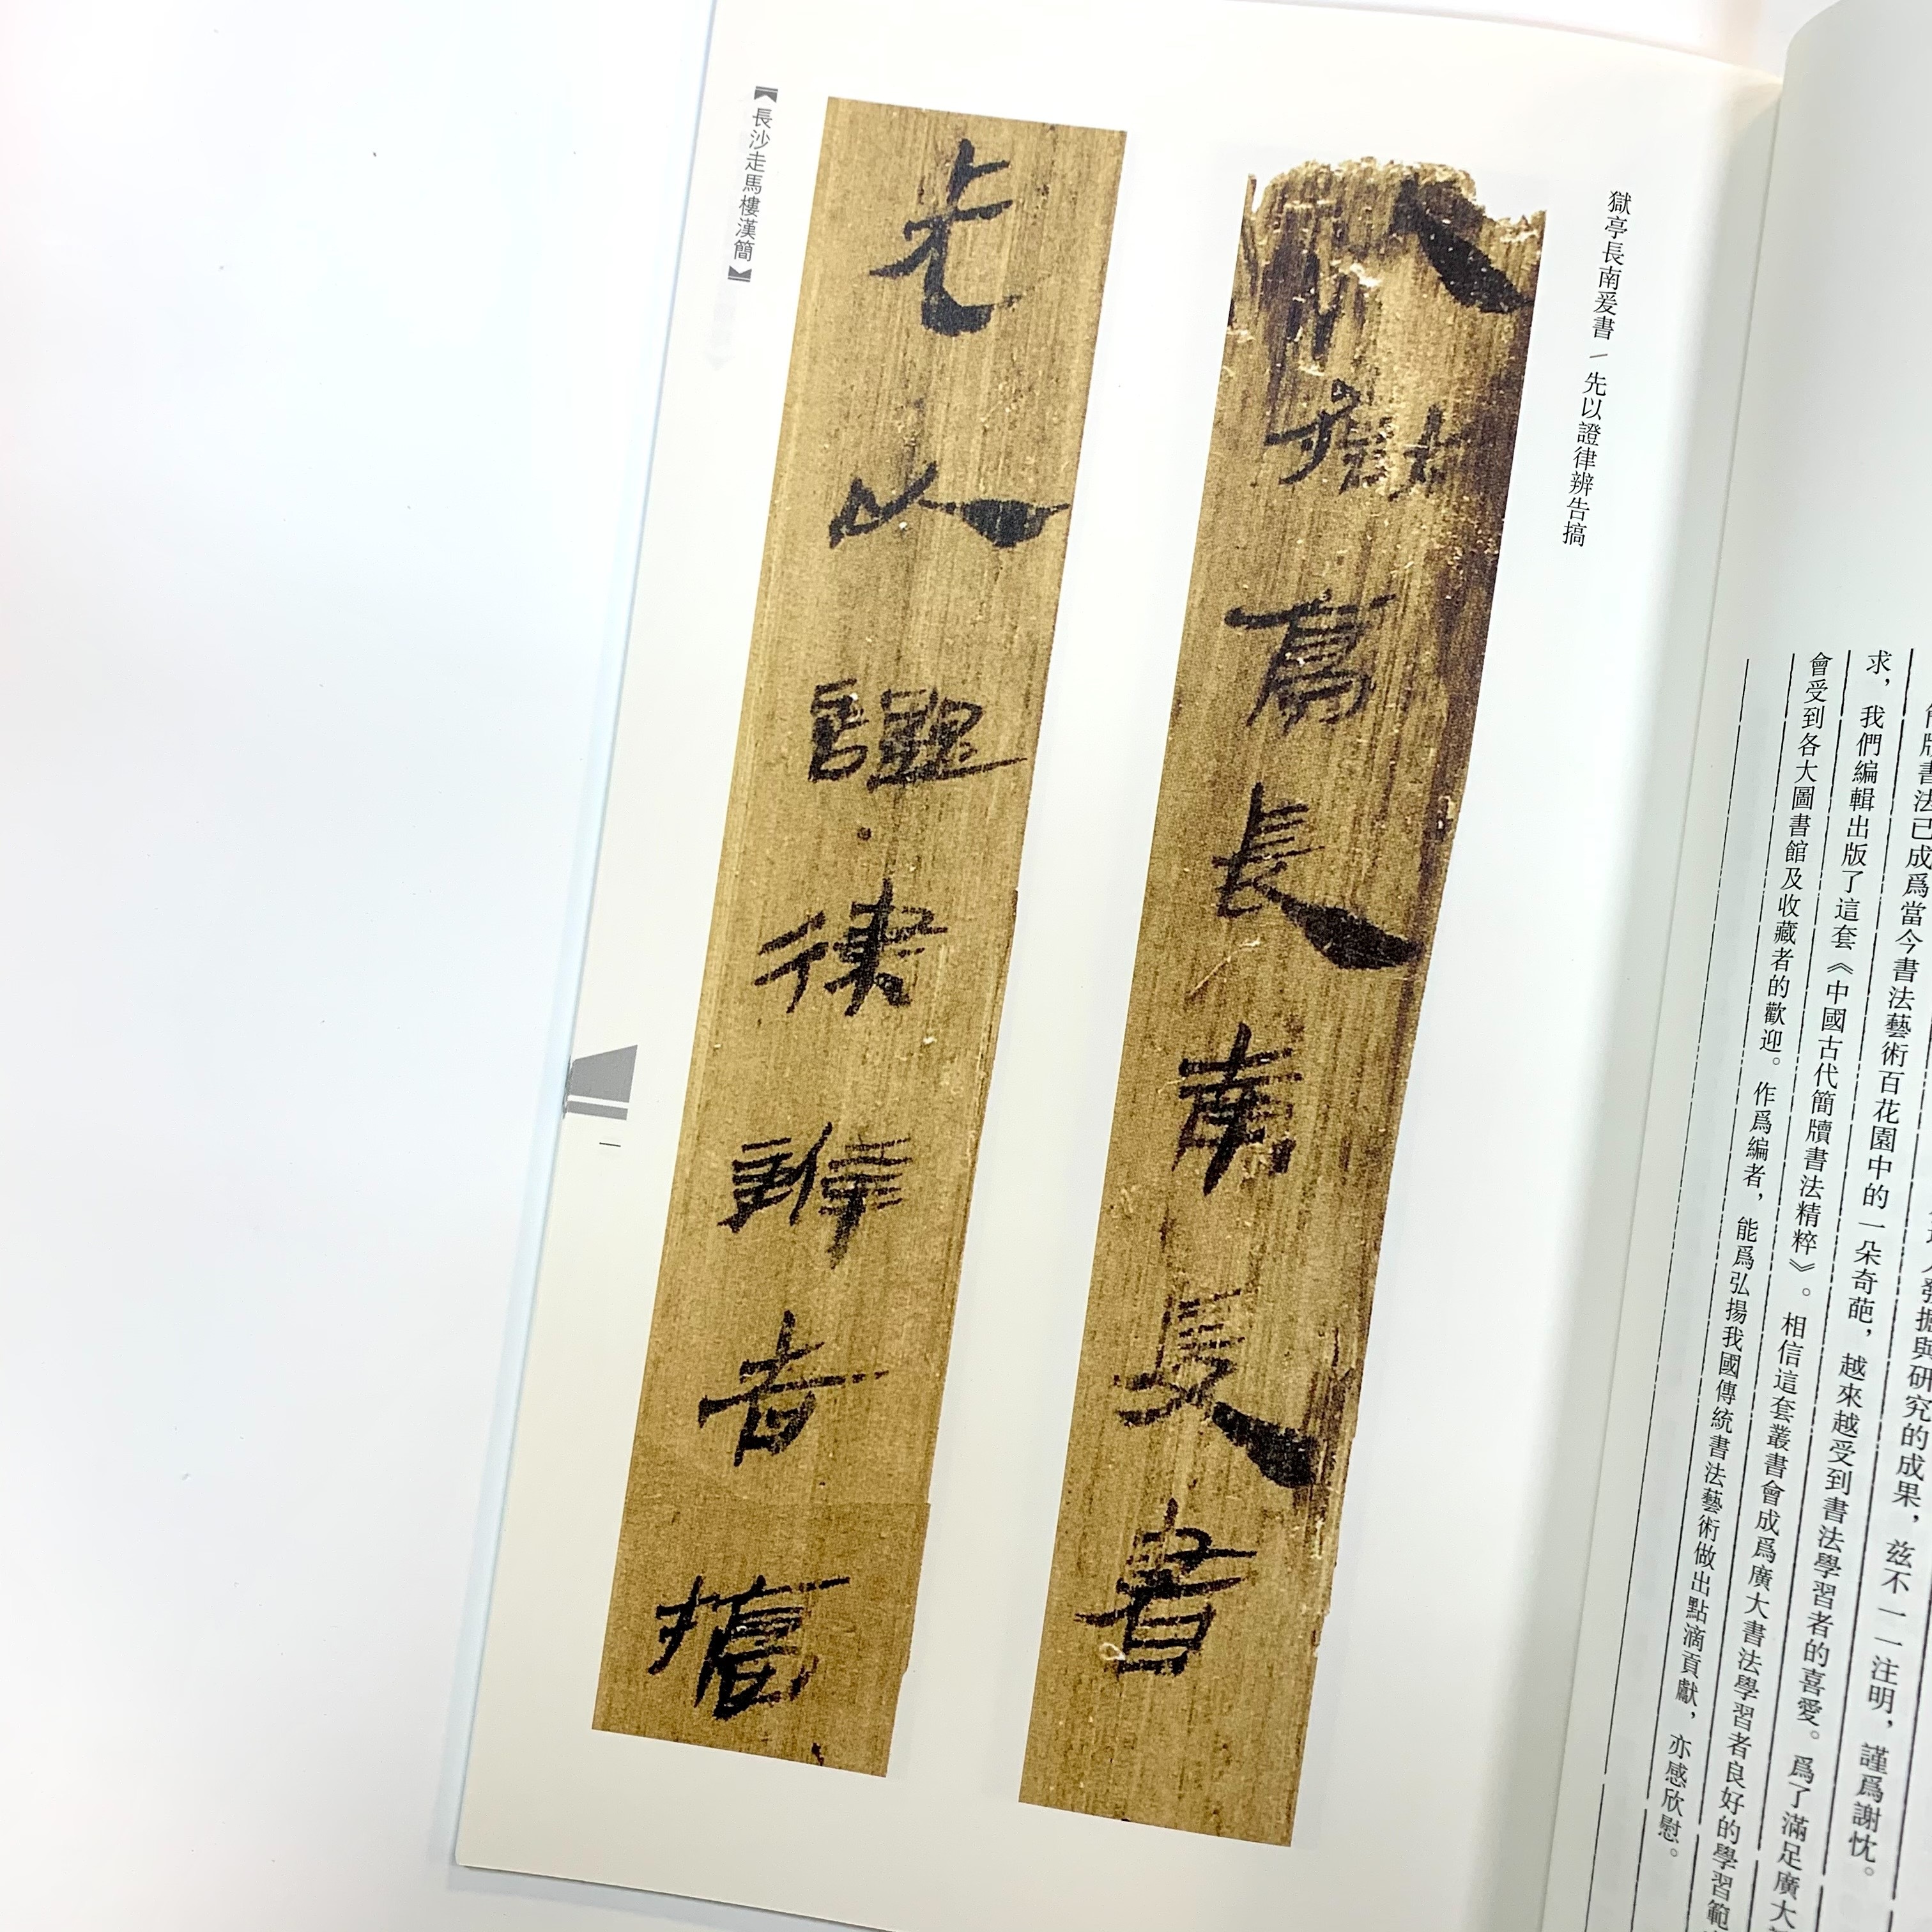 簡牘書法已成爲當今書法藝術百花園中的一朵奇葩，越來越受到書法學習者的喜愛。爲了滿足廣大
求，我們編輯出版了這套《中國古代簡牘書法精粹》。相信這套叢書會成爲廣大書法學習者良好的學習範
會受到各大圖書館及收藏者的歡迎。作爲編者，能爲弘揚我國傳統書法藝術做出點滴貢獻，亦感欣慰。
發掘與研究的成果，兹不一一注明，謹爲謝忱。
獄亭長南爰書/先以證律辨告搞
獄亭長南爰書
先以證律辨告搞
【長沙走馬樓漢簡】
一